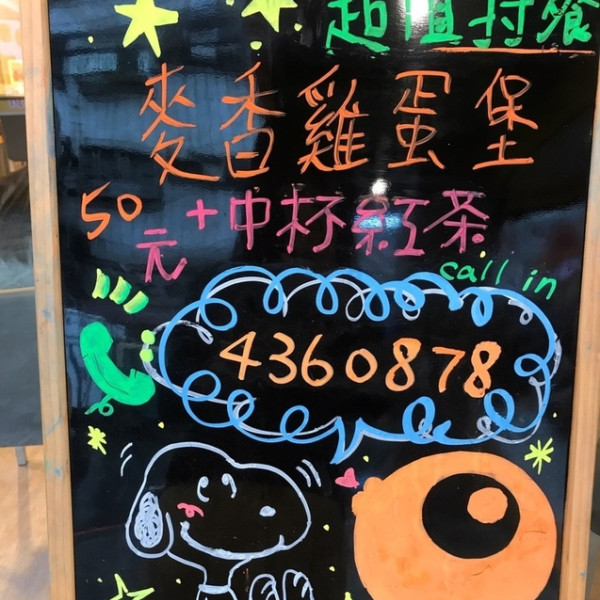 超值套餐
麥香雞蛋堡
50元+中杯紅茶
call in
4360878